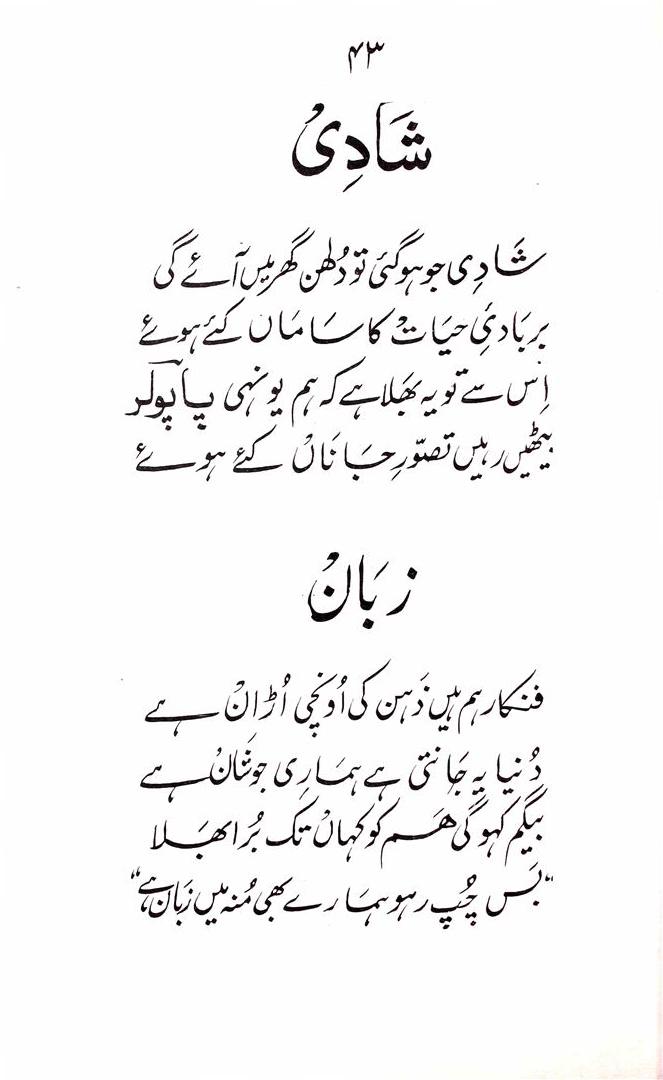 ۴۳
شَادِیْ
شَادِی جو ہوگئی تو دُلھن گھر میں آئے گی
بربَادئِ حیَاتْ کا سَامَاں کئے ہوئے
اِس سے تو یہ بھَلا ہے کہ ہم یونہی پاپولر
بیٹھیں رہیں تصوّرِ جَانَاںْ کئے ہوئے
زبَانْ
فنکار ہم ہیں ذَہن کی اُونچی اُڑانْ ہے
دُنیا یہ جَانتی ہے ہمَاری جو شَانْ ہے
بیگم کہو گی ھَم کو کہاںْ تک بُرا بھَلا
"بَس چُپ رہو ہمَارے بھی مُنہ میں زبَان ہے"